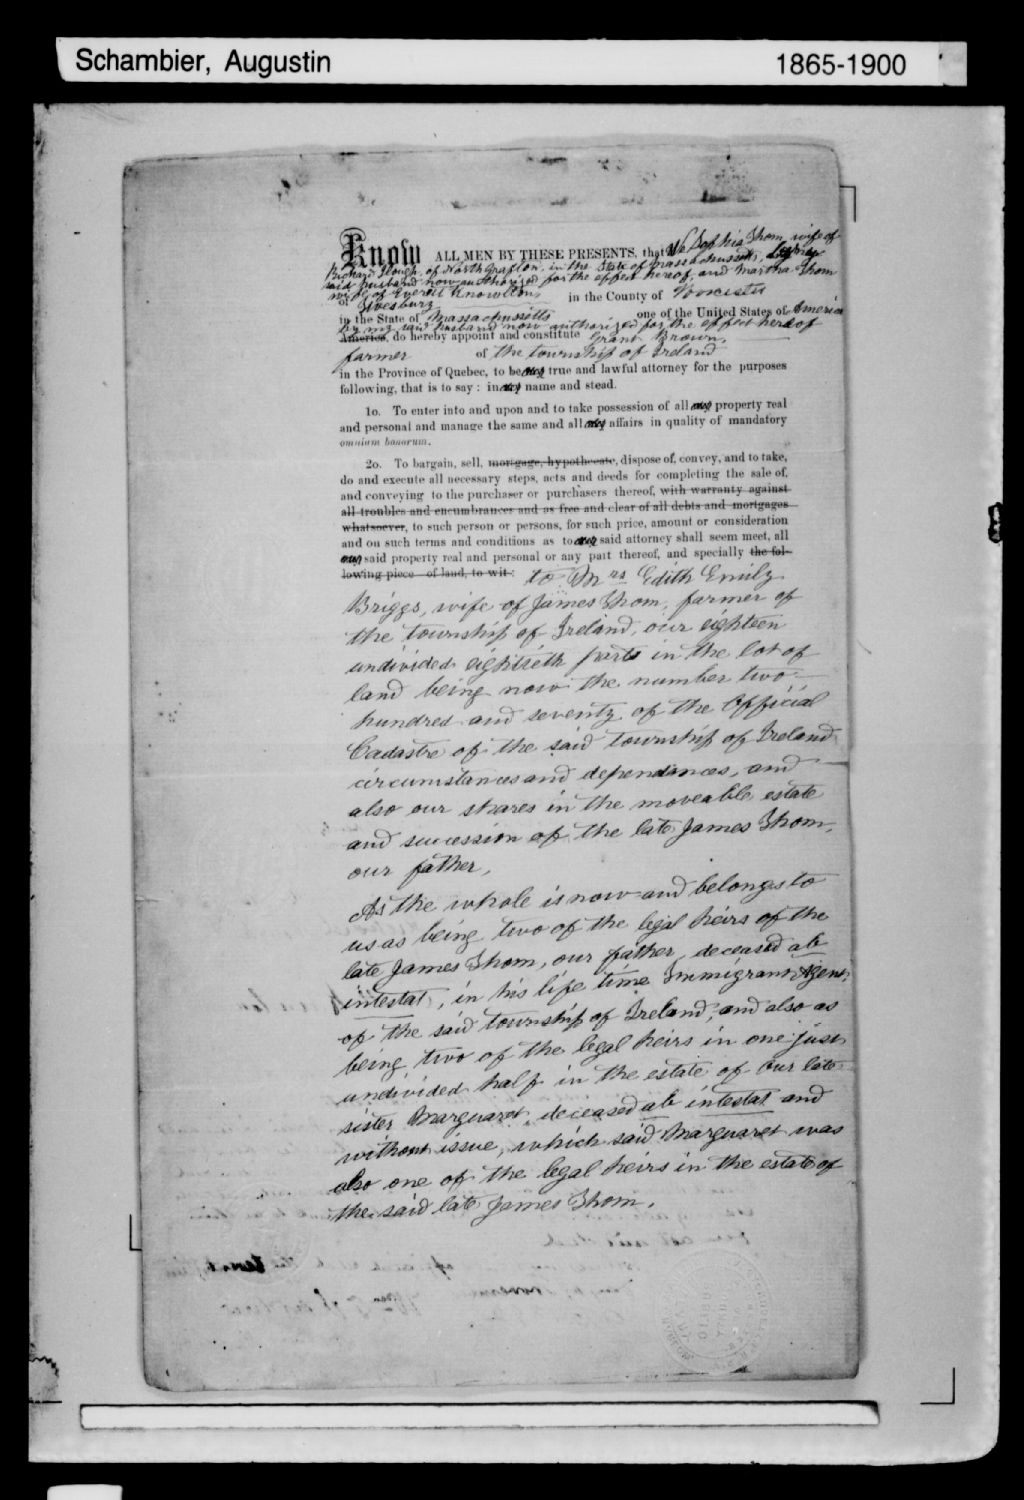 Schambier, Augustin 1865-1900
Know ALL MEN BY THESE PRESENTS, that We Sophia Thom, wife of
Richard Clough, of North Grafton, in the State of Massachusetts,
said husband now authorized for the effect hereof, and Martha Thom
wife of Everett Knowlton,
of in the County of Worcester
in the State of Massachusetts one of the United States of America
by my said husband now authorized for the effect hereof
America, do hereby appoint and constitute Grant Brown,
farmer of the township of Ireland
in the Province of Quebec, to be our true and lawful attorney for the purposes
following, that is to say : in our name and stead.
1o. To enter into and upon and to take possession of all our property real
and personal and manage the same and all our affairs in quality of mandatory
omnium bonorum.
2o. To bargain, sell, mortgage, hypothecate, dispose of, convey, and to take,
do and execute all necessary steps, acts and deeds for completing the sale of,
and conveying to the purchaser or purchasers thereof, with warranty against
all troubles and encumbrances and as free and clear of all debts and mortgages
whatsoever, to such person or persons, for such price, amount or consideration
and on such terms and conditions as to our said attorney shall seem meet, all
our said property real and personal or any part thereof, and specially the fol-
lowing piece of land, to wit : to Mrs Edith Emily
Briggs, wife of James Thom, farmer of
the township of Ireland, our eighteen
undivided eightieth parts in the lot of
land being now the number two
hundred and seventy of the Official
Cadastre of the said township of Ireland
circumstances and dependances, and
also our shares in the moveable estate
and succession of the late James Thom,
our father,
As the whole is now and belongs to
us as being two of the legal heirs of the
late James Thom, our father, deceased ab
intestat, in his life time Immigrant Agent,
of the said township of Ireland, and also as
being two of the legal heirs in one just
undivided half in the estate of our late
sister Marguaret, deceased ab intestat and
without issue, which said Marguaret was
also one of the legal heirs in the estate of
the said late James Thom.